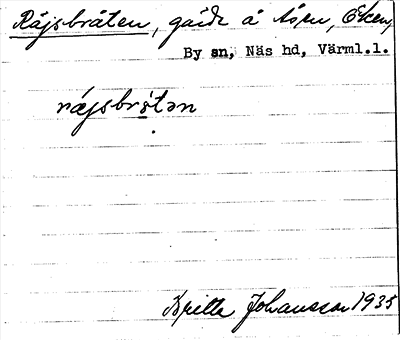 Råjsbråten, gärde å Åsen, Eken,
By sn, Näs hd, Värml.l.
råjsbrǫ́tən
Britta Johansson 1935